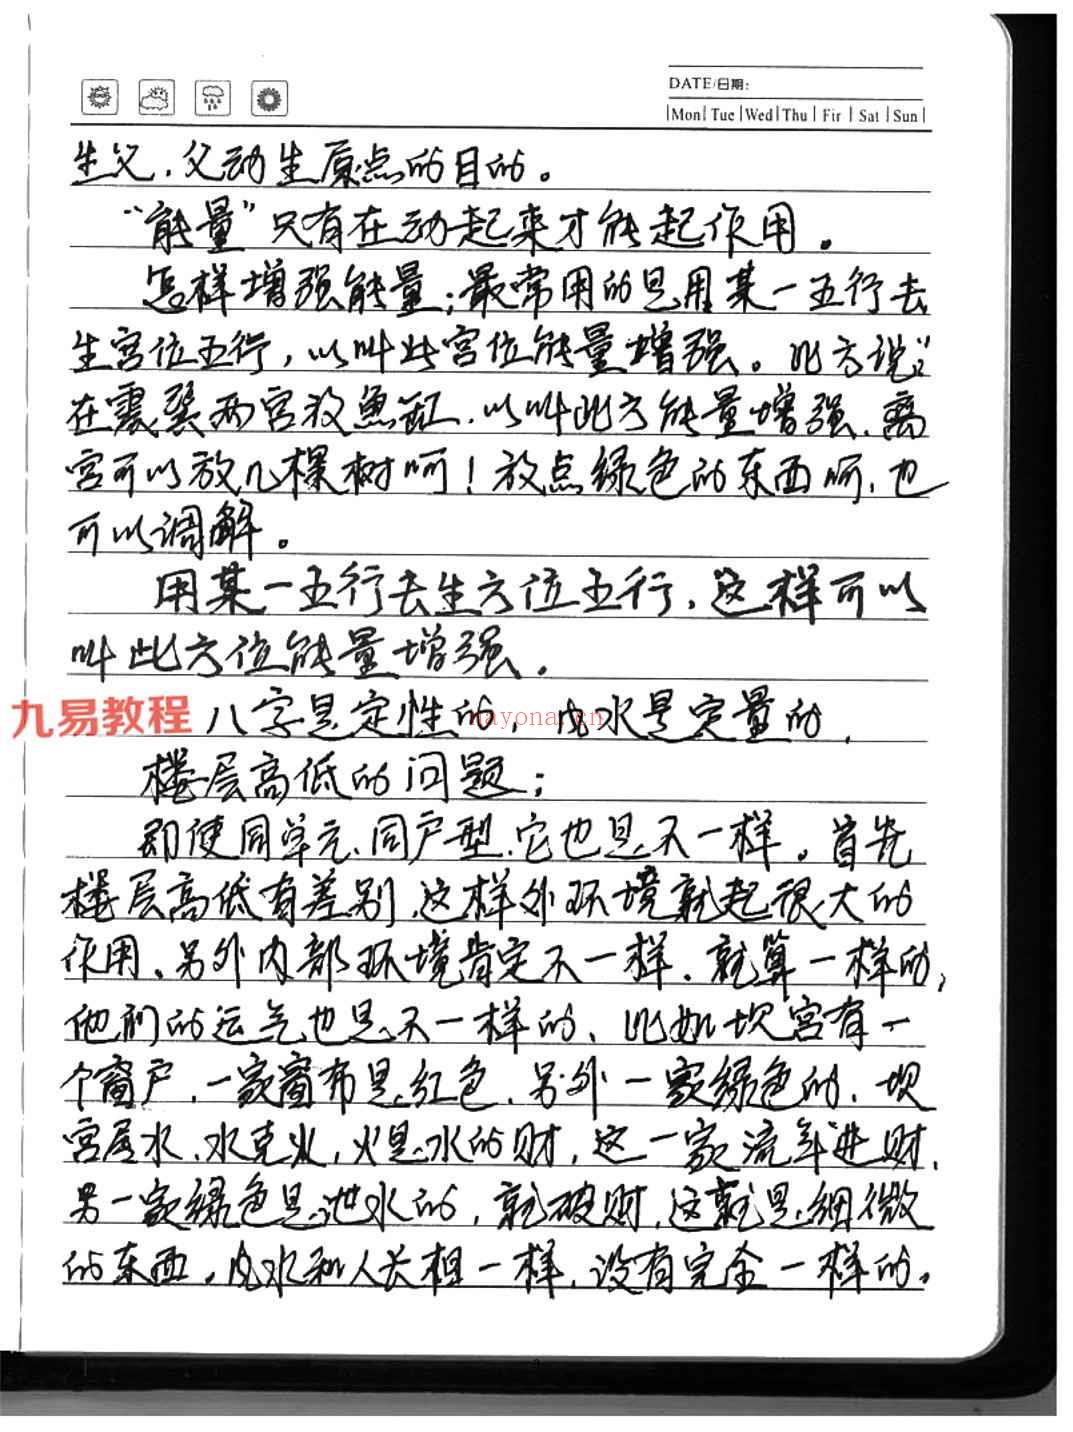 DATE/日期:
Mon Tue Wed Thu Fir Sat Sun
生父，父动生原点的目的。
“能量”只有在动起来才能起作用。
怎样增强能量；最常用的是用某一五行去
生宫位五行，以叫此宫位能量增强。比方说：
在震巽两宫放鱼缸，以叫此方能量增强，离
宫可以放几棵树呵！放点绿色的东西呵，也
可以调解。
用某一五行去生方位五行，这样可以
叫此方位能量增强。
九易教程
八字是定性的，风水是定量的，
nayona.cn
楼层高低的问题；
即使同单元、同户型，它也是不一样。首先
楼层高低有差别，这样外环境就起很大的
作用、另外内部环境肯定不一样，就算一样的，
他们的运气也是不一样的、比如坎宫有一
个窗户，一家窗布是红色，另外一家绿色的，坎
宫属水，水克火，火是水的财，这一家流年进财，
另一家绿色是泄水的，就破财，这就是细微
的东西，风水和人长相一样，没有完全一样的。